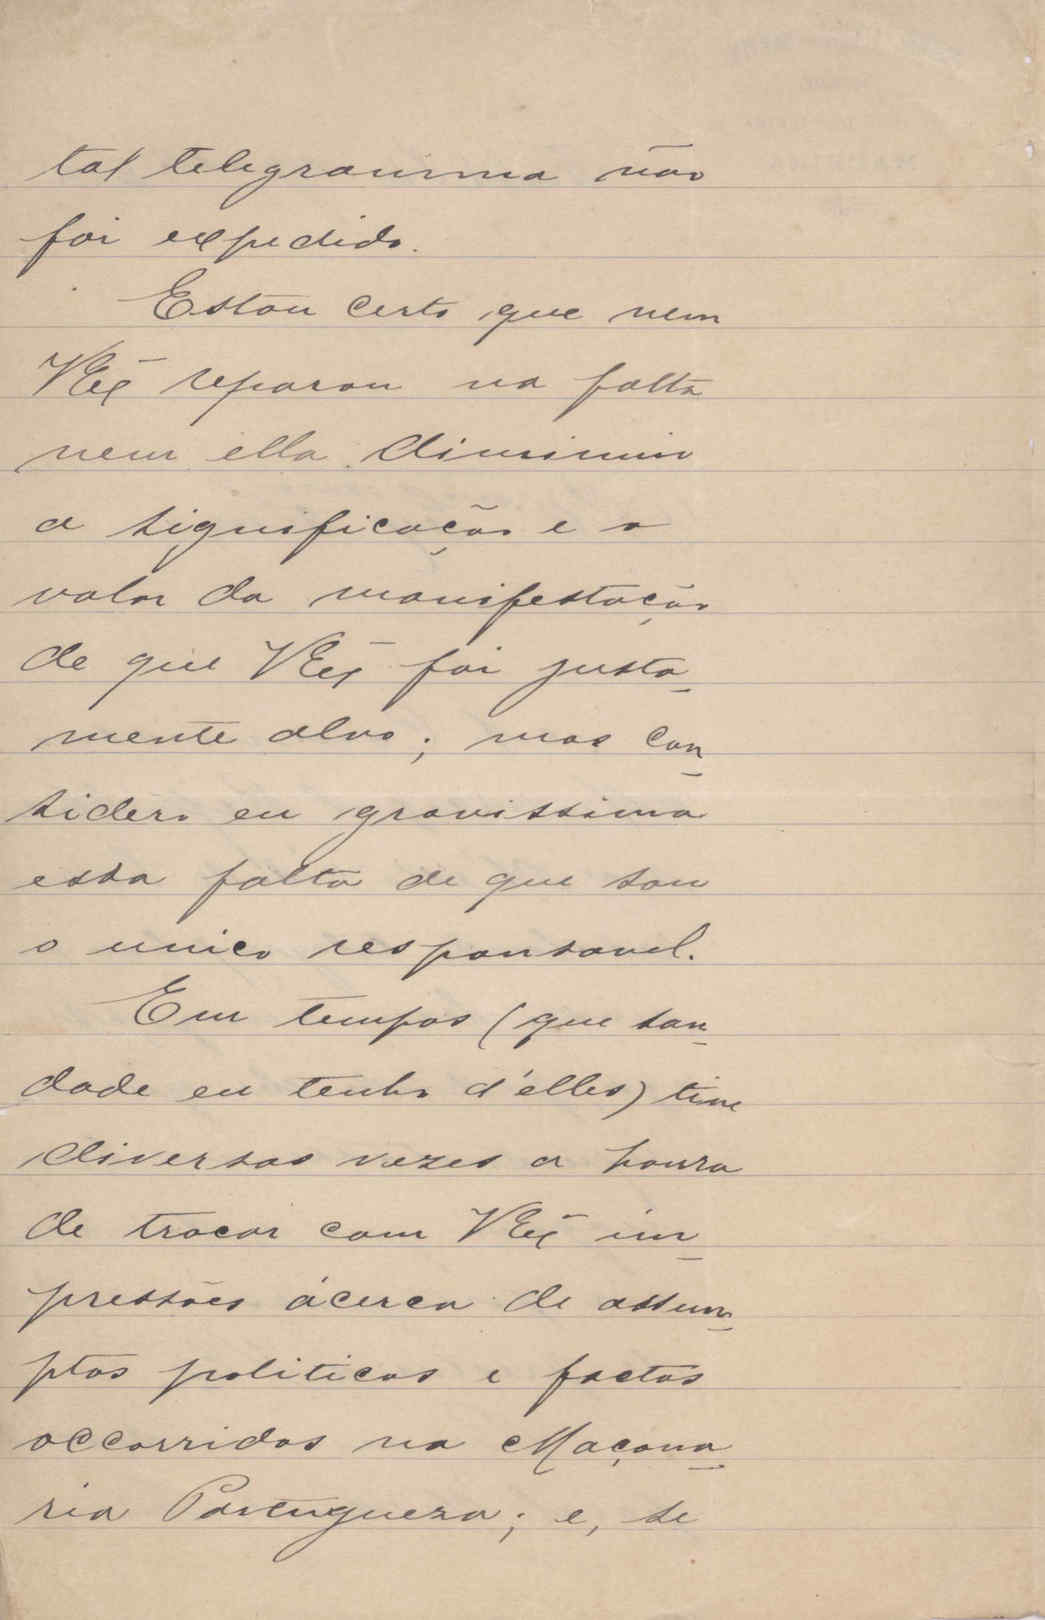 tal telegramma não
foi expedido.
Estou certo que nem
VEx reparou na falta
nem ella diminuiu
a significação e o
valor da manifestação
de que VEx foi justa-
mente alvo; mas con-
sidero eu gravissima
essa falta de que sou
o unico responsavel.
Em tempos (que sau-
dade eu tenho d'elles) tive
diversas vezes a honra
de trocar com VEx im-
pressões ácerca de assum-
ptos politicos e factos
occorridos na Maçona-
ria Portugueza; e, se